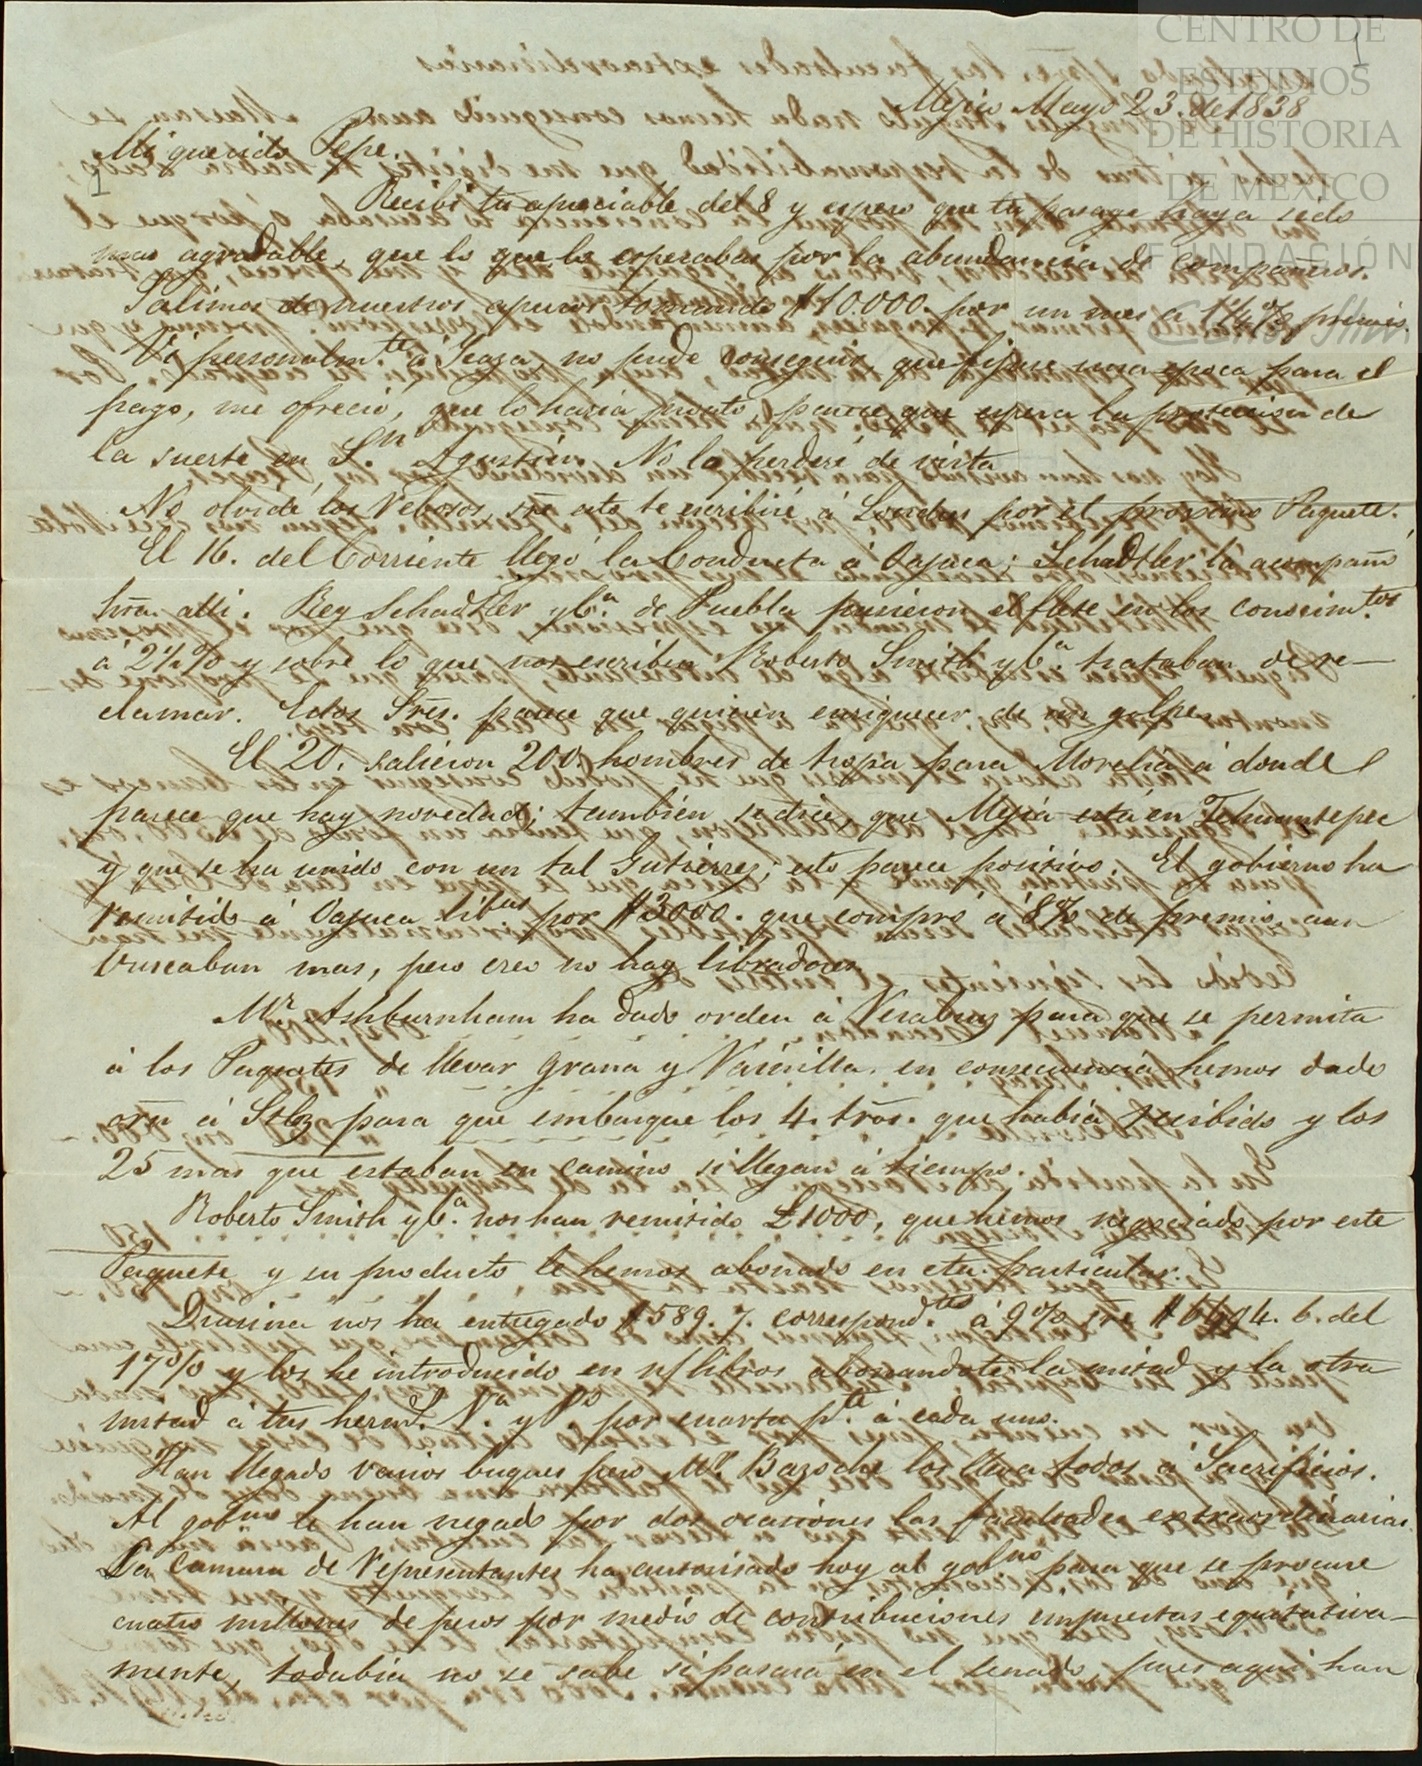 CENTRO DE
ESTUDIOS
DE HISTORIA
DE MEXICO
FUNDACIÓN
1
Mejico Mayo 23. de 1838
Mi querido Pepe.
1
Recibí tu apreciable del 8 y espero que tu pasage haya sido
mas agradable, que lo que lo esperabas por la abundancia de compañeros.
Salimos de nuestros apuros tomando $10.000. por un mes á 1¼% premio.
Ví personalm.te á Icaza, no pude conseguir, que fijase una epoca para el
pago, me ofreció, que lo haria pronto, parece que espera la proteccion de
la suerte en S.n Agustin. No lo perderé de vista
No olvidé los Rebosos, sre esto te escribiré á Londres por el proximo Paquete.
El 16. del Corriente llegó la Conducta á Oajaca; Schadtler la acompañó
hta alli. Rey Schadtler y C.a de Puebla pusieron el flete en los conocim.tos
á 2½% y sobre lo que nos escriben Roberto Smith y C.a trataban de re-
clamar. Estos Sres. parece que quieren enriquecer de un golpe.
El 20. salieron 200. hombres de tropa para Morelia á donde
parece que hay novedad; tambien se dice, que Mejia está en Tehuantepec
y que se ha unido con un tal Gutierrez; esto parece positivo. El gobierno ha
remitido á Oajaca lib.zas por $3000. que compró á 8% de premio, aun
buscaban mas, pero creo no hay libradores.
M.r Ashburnham ha dado orden á VeraCruz para que se permita
á los Paquetes de llevar grana y Vainilla. en consecuencia hemos dado
orn á Stlz para que embarque los 4. tros. que habia recibido y los
25 mas que estaban en camino si llegan á tiempo.
Roberto Smith y C.a nos han remitido £1000, que hemos negociado por este
Paquete y su producto te hemos abonado en cta. particular.
Drusina nos ha entregado $589. 7. correspond.tes á 9% sre $6494. 6. del
17% y los he introducido en n/ libros abonandote la mitad y la otra
mitad á tus herm.s N.a y P.o por cuarta p.te á cada uno.
Han llegado varios buques pero M.r Bazoche los lleva todos á Sacrificios.
Al gob.no le han negado por dos ocasiones las facultades extraordinarias.
La Camara de Representantes ha autorisado hoy al gob.no para que se procure
cuatro millones de pesos por medio de contribuciones impuestas equitativa-
mente, todabia no se sabe si pasará en el senado, pues aqui han